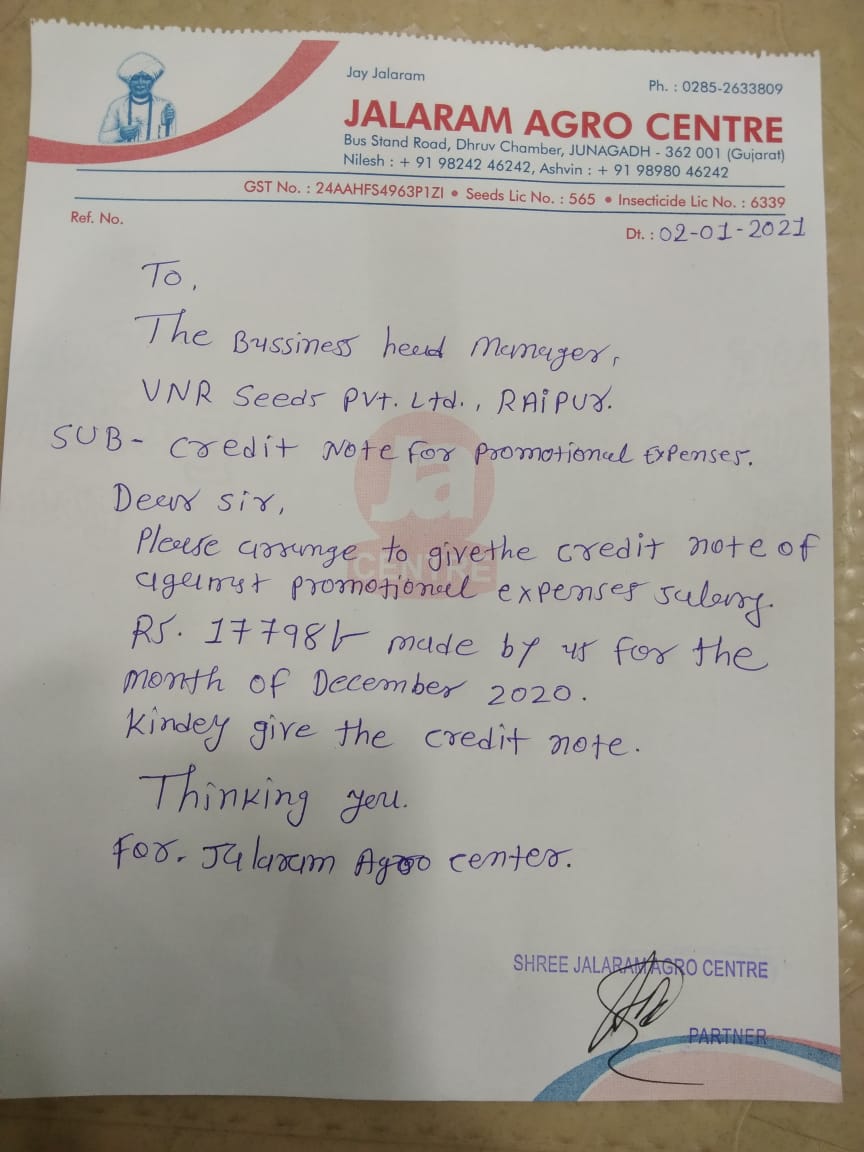 Jay Jalaram
Ph. : 0285-2633809
JALARAM AGRO CENTRE
Bus Stand Road, Dhruv Chamber, JUNAGADH - 362 001 (Gujarat)
Nilesh : + 91 98242 46242, Ashvin : + 91 98980 46242
GST No. : 24AAHFS4963P1ZI • Seeds Lic No. : 565 • Insecticide Lic No. : 6339
Ref. No.
Dt. : 02-01-2021
To,
The Bussiness head Manager,
VNR Seeds Pvt. Ltd., RAiPUR.
SUB- Credit Note For Promotional Expenses.
Dear sir,
Please arrange to give the credit note of
against promotional expenses salary.
RS. 17798/- made by us for the
month of December 2020.
Kindey give the credit note.
Thinking you.
For. Jalaram Agro center.
ja
CENTRE
SHREE JALARAM AGRO CENTRE
PARTNER